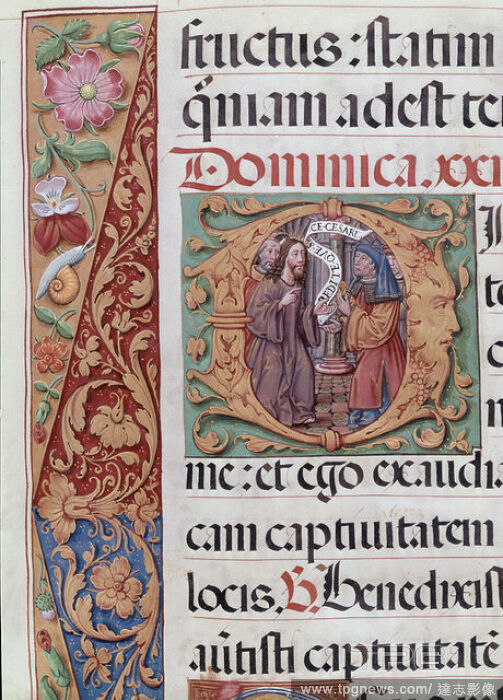 fructus : statim
q̃niam adest te
Dominica.xxi
CE·CESARI
D
me : et ego exaudi
cam captiuitatem
locis. R. Benedixist
aũtisti captiuitatē
www.tpgnews.com / 達志影像